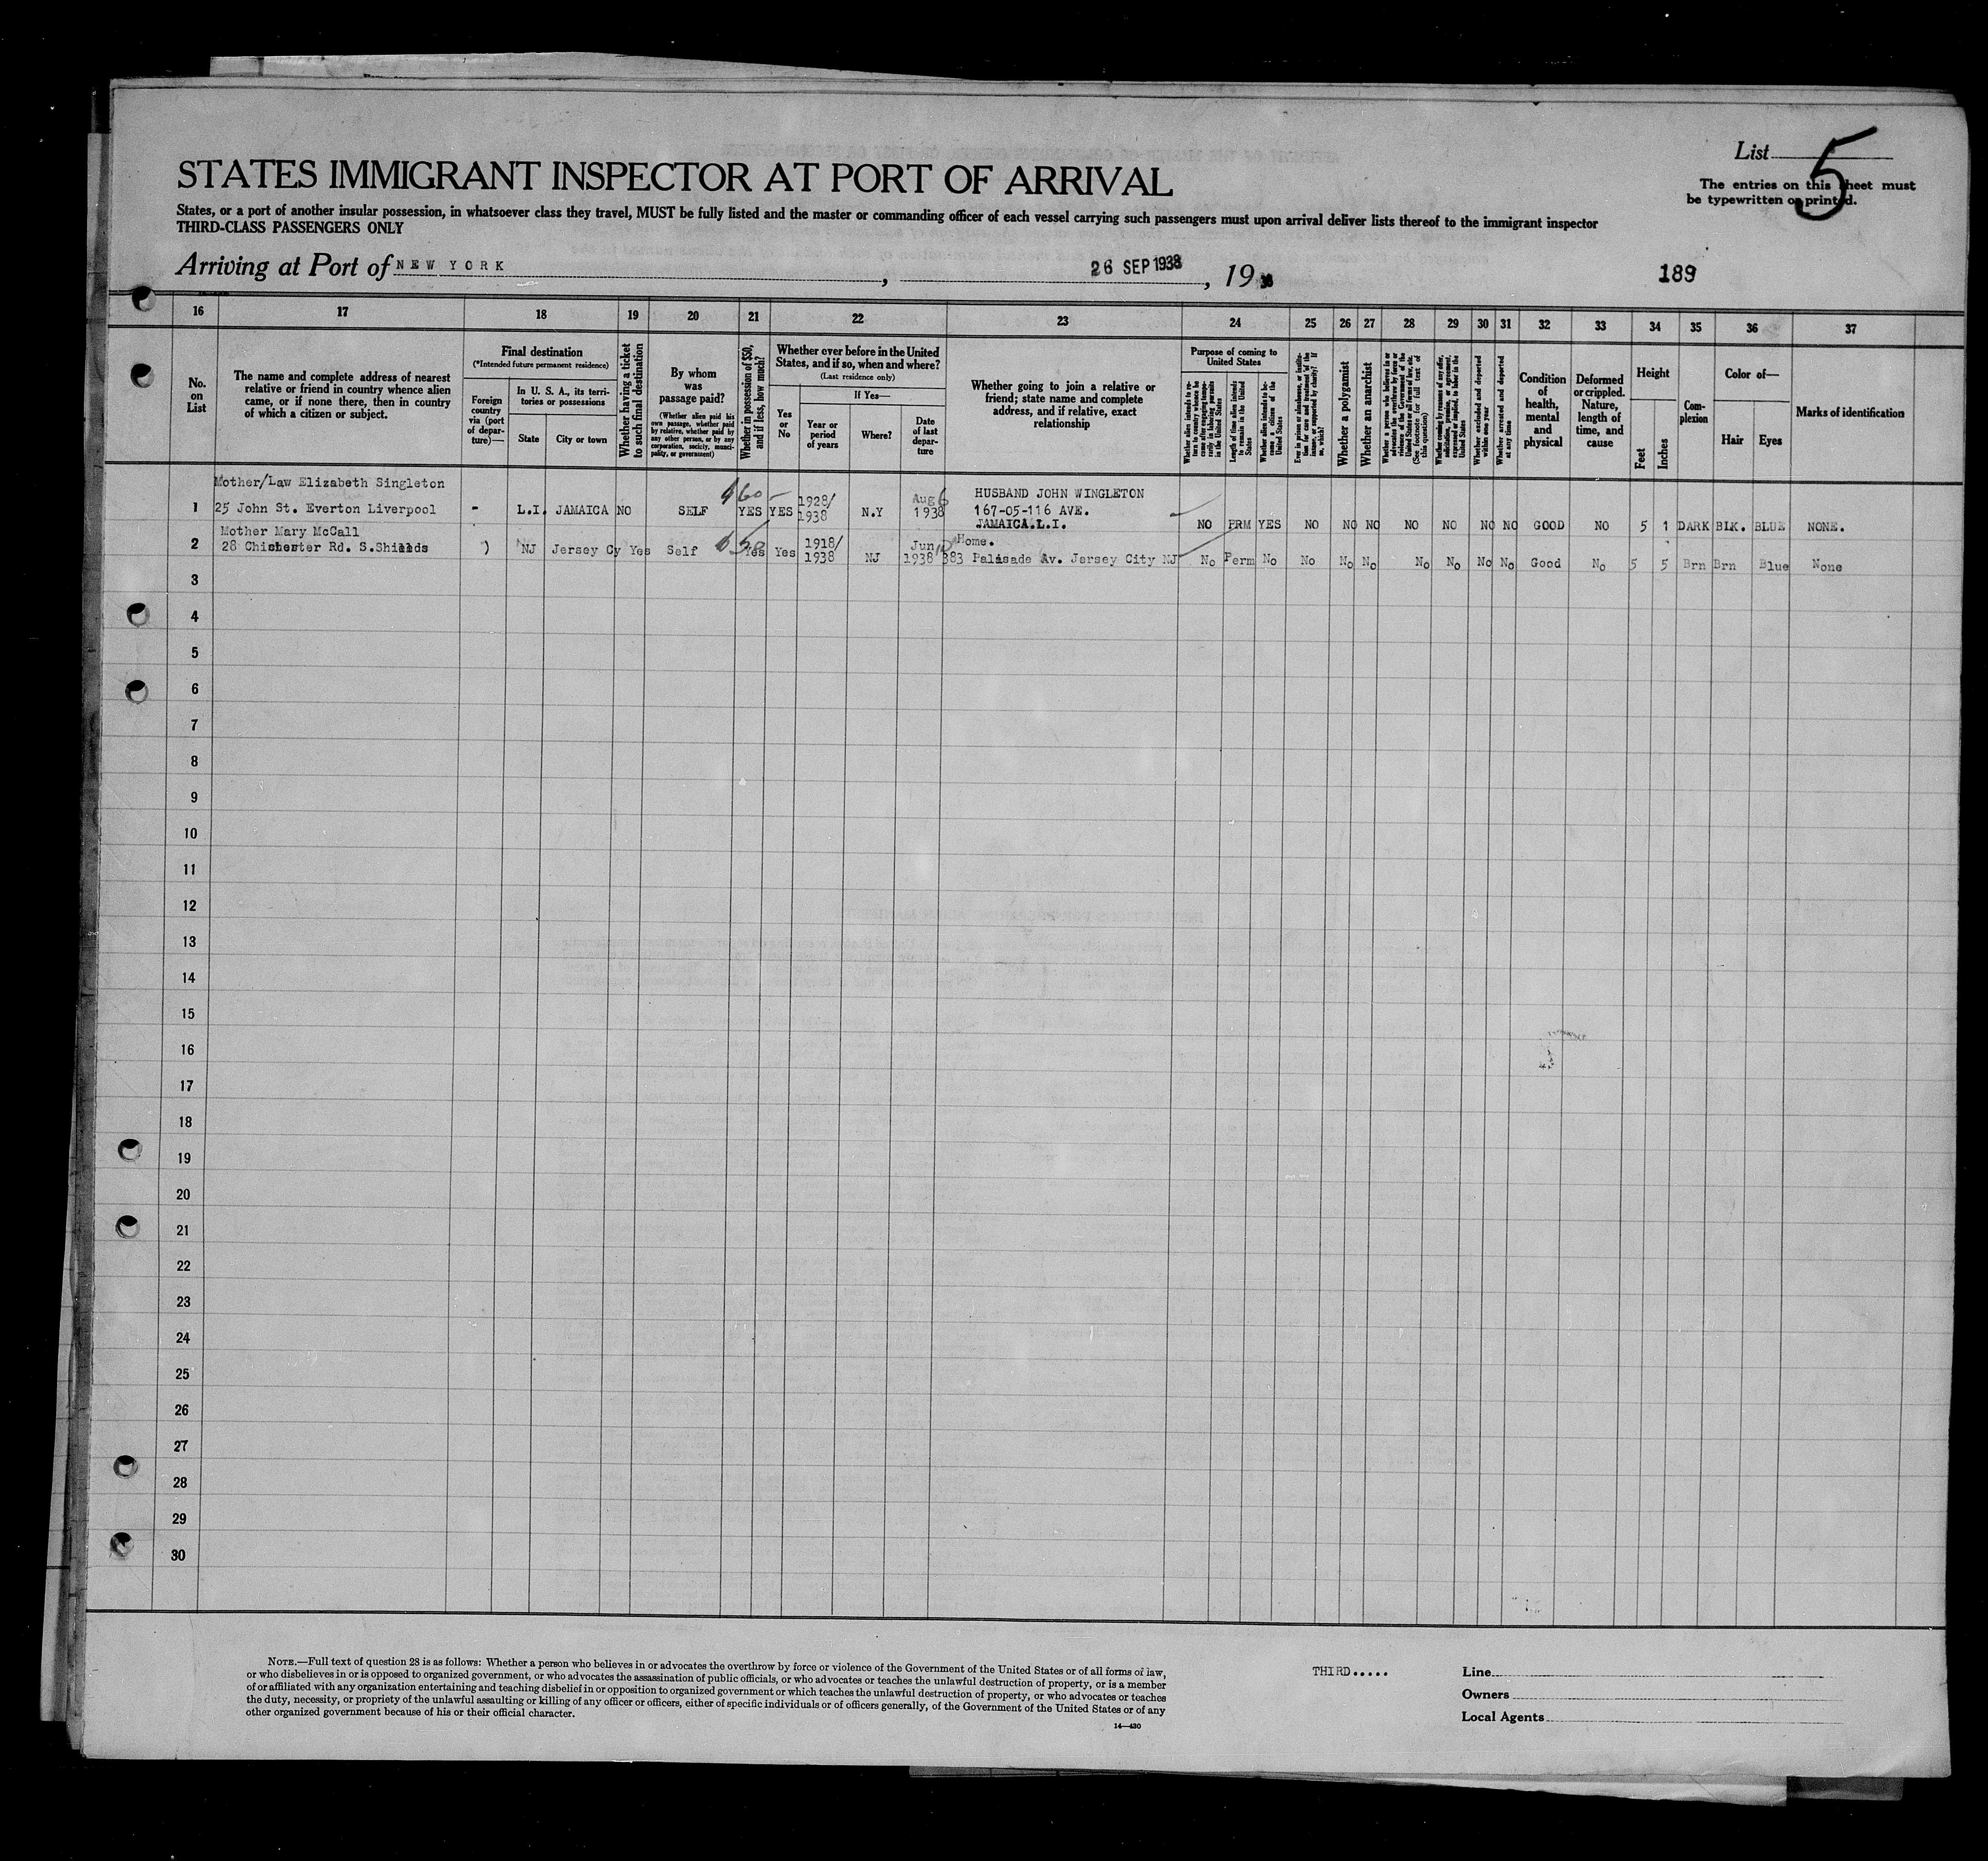 List 5
The entries on this sheet must
be typewritten or printed.
STATES IMMIGRANT INSPECTOR AT PORT OF ARRIVAL
States, or a port of another insular possession, in whatsoever class they travel, MUST be fully listed and the master or commanding officer of each vessel carrying such passengers must upon arrival deliver lists thereof to the immigrant inspector
THIRD-CLASS PASSENGERS ONLY
Arriving at Port of NEW YORK, 26 SEP 1938, 19
189
16 17 18 19 20 21 22 23 24 25 26 27 28 29 30 31 32 33 34 35 36 37
No.
on
List
The name and complete address of nearest
relative or friend in country whence alien
came, or if none there, then in country
of which a citizen or subject.
Final destination
(*Intended future permanent residence)
Foreign
country
via (port
of depar-
ture)—
In U. S. A., its terri-
tories or possessions
State
City or town
Whether having a ticket
to such final destination
By whom
was
passage paid?
(Whether alien paid his
own passage, whether paid
by relative, whether paid by
any other person, or by any
corporation, society, munici-
pality, or government)
Whether in possession of $50,
and if less, how much?
Whether ever before in the United
States, and if so, when and where?
(Last residence only)
Yes
or
No
If Yes—
Year or
period
of years
Where?
Date
of last
depar-
ture
Whether going to join a relative or
friend; state name and complete
address, and if relative, exact
relationship
Purpose of coming to
United States
Whether alien intends to re-
turn to country whence he
came after engaging tempo-
rarily in laboring pursuits
in the United States
Length of time alien intends
to remain in the United
States
Whether alien intends to be-
come a citizen of the
United States
Ever in prison or almshouse, or institu-
tion for care and treatment of the
insane, or supported by charity? If
so, which?
Whether a polygamist
Whether an anarchist
Whether a person who believes in or
advocates the overthrow by force or
violence of the Government of the
United States or all forms of law, etc.
(See footnote for full text of
this question)
Whether coming by reason of any offer,
solicitation, promise, or agreement,
expressed or implied, to labor in the
United States
Whether excluded and deported
within one year
Whether arrested and deported
at any time
Condition
of
health,
mental
and
physical
Deformed
or crippled.
Nature,
length of
time, and
cause
Height
Feet
Inches
Com-
plexion
Color of—
Hair
Eyes
Marks of identification
Mother/Law Elizabeth Singleton
1 25 John St. Everton Liverpool - L.I. JAMAICA NO SELF $60- YES YES 1928/1938 N.Y Aug 6 1938 HUSBAND JOHN WINGLETON
167-05-116 AVE.
JAMAICA.L.I. NO PRM YES NO NO NO NO NO NO NO GOOD NO 5 1 DARK BLK. BLUE NONE.
Mother Mary McCall
2 28 Chichester Rd. S.Shields ) NJ Jersey Cy Yes Self $50 Yes Yes 1918/1938 NJ Jun 1938 Home.
383 Palisade Av. Jersey City NJ No Perm No No No No No No No No Good No 5 5 Brn Brn Blue None
3
4
5
6
7
8
9
10
11
12
13
14
15
16
17
18
19
20
21
22
23
24
25
26
27
28
29
30
NOTE.—Full text of question 28 is as follows: Whether a person who believes in or advocates the overthrow by force or violence of the Government of the United States or of all forms of law,
or who disbelieves in or is opposed to organized government, or who advocates the assassination of public officials, or who advocates or teaches the unlawful destruction of property, or is a member
of or affiliated with any organization entertaining and teaching disbelief in or opposition to organized government or which teaches the unlawful destruction of property, or who advocates or teaches
the duty, necessity, or propriety of the unlawful assaulting or killing of any officer or officers, either of specific individuals or of officers generally, of the Government of the United States or of any
other organized government because of his or their official character.
14—430
THIRD.....
Line
Owners
Local Agents